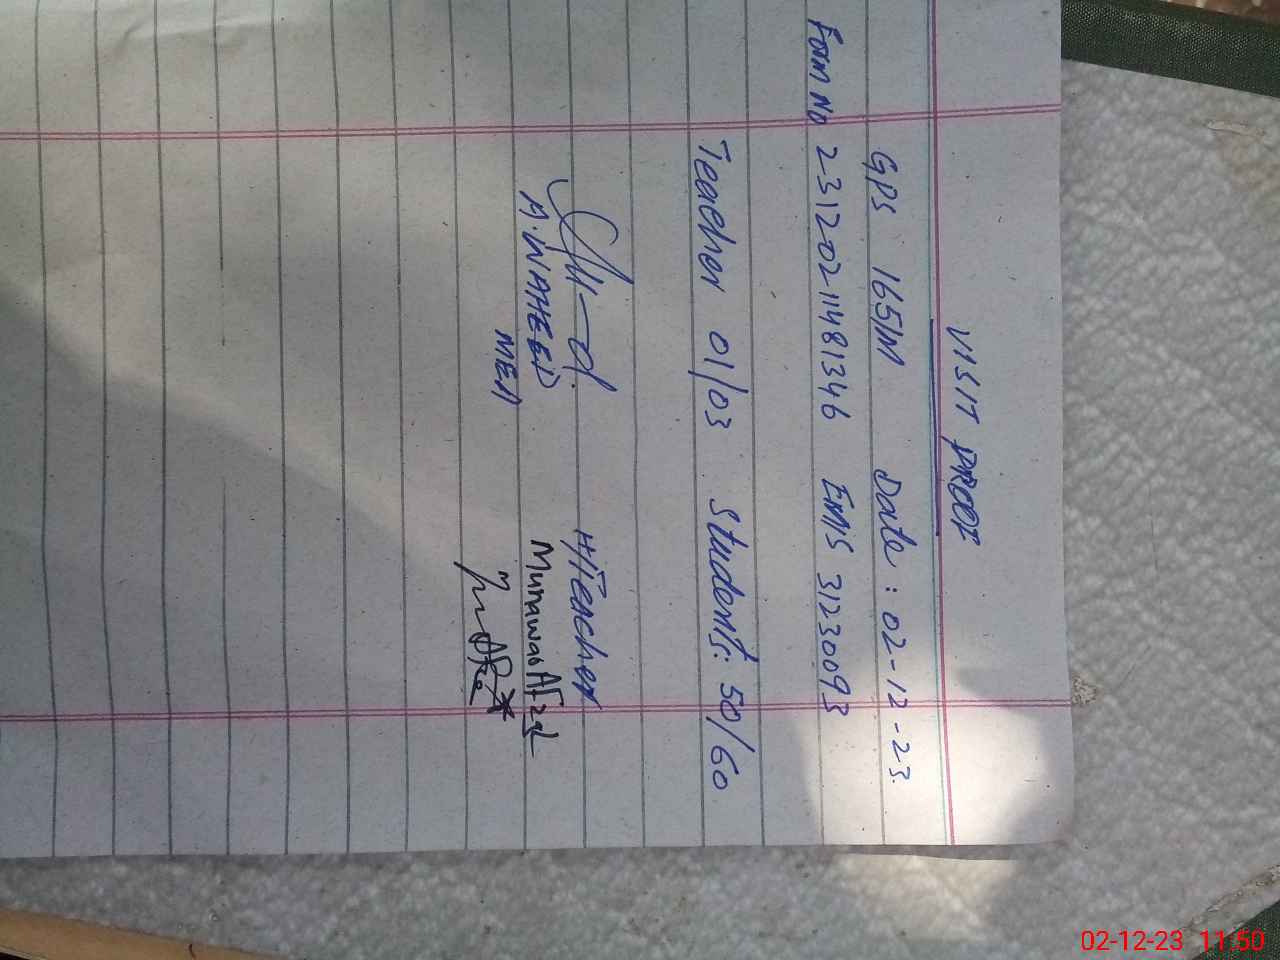 VISIT PROOF
GPS 165/M Date : 02-12-23.
Form No 23120211481346 EMIS 31230093
Teacher 01/03 Students: 50/60
A.WAHEED
MEA
H/Teacher
Munawar Afzal
02-12-23 11:50